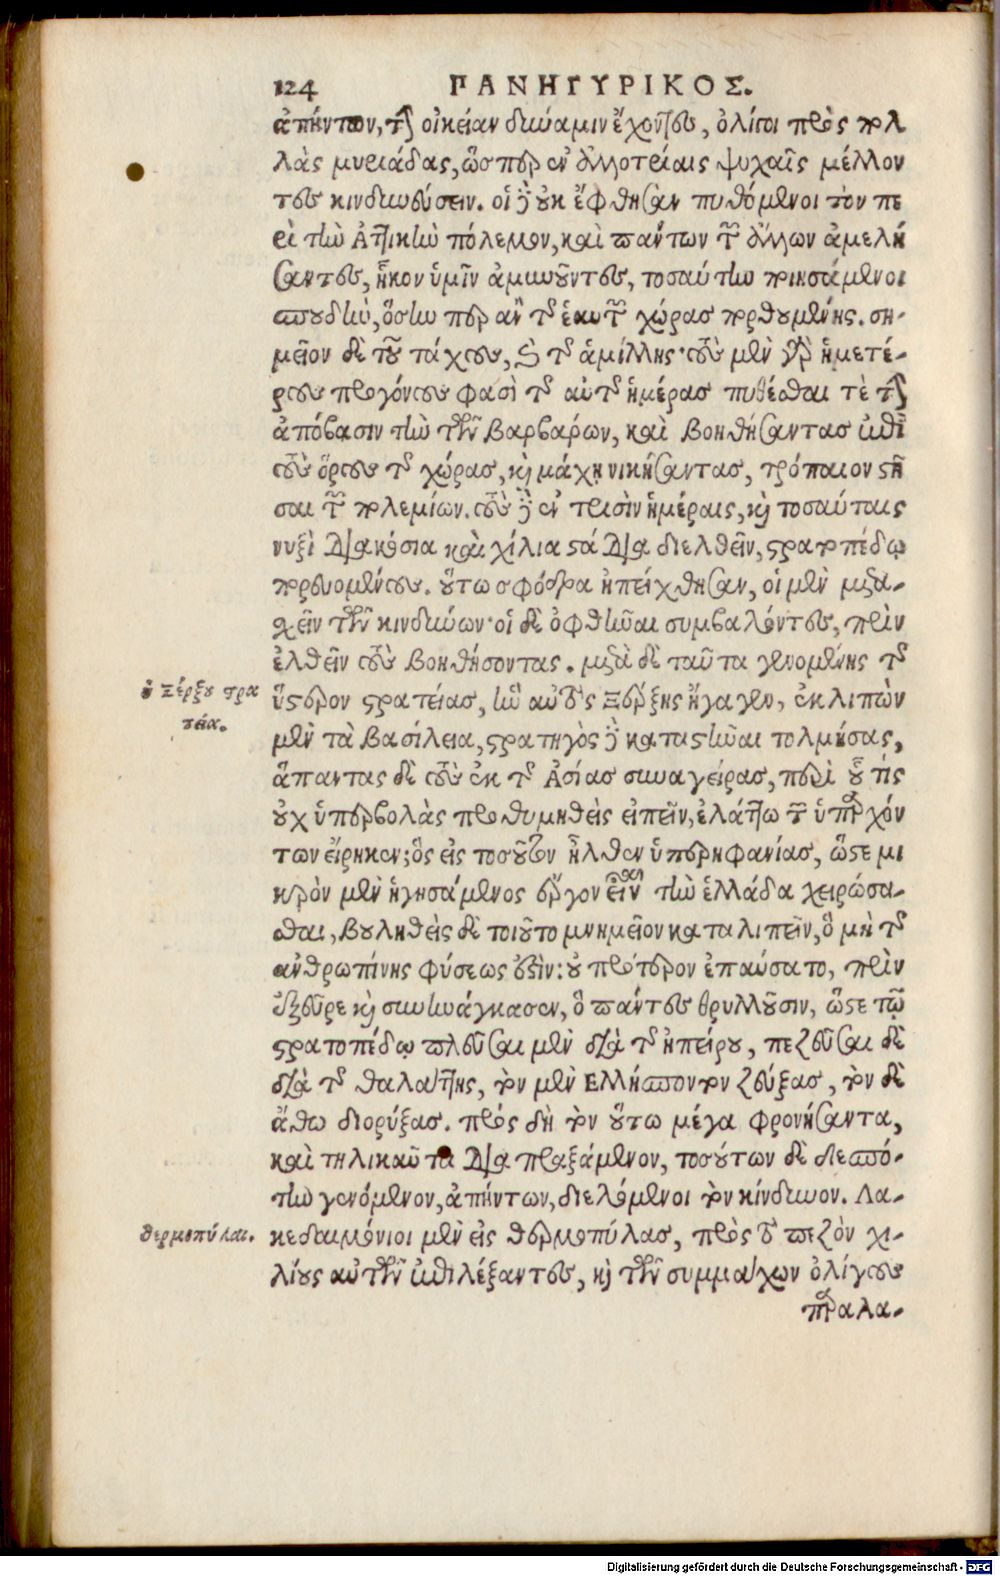 124 ΠΑΝΗΓΥΡΙΚΟΣ.
ἀπήντων, τὴν οἰκείαν δύναμιν ἔχοντες, ὀλίγοι πρὸς πολ
λὰς μυριάδας, ὥσπερ ἐν ἀλλοτρίαις ψυχαῖς μέλλον
τες κινδυνεύσειν. οἱ δ' οὐκ ἔφθησαν πυθόμενοι τὸν πε
ρὶ τὴν Ἀττικὴν πόλεμον, καὶ πάντων τῶν ἄλλων ἀμελή
σαντες, ἧκον ὑμῖν ἀμυνοῦντες, τοσαύτην ποιησάμενοι
σπουδὴν, ὅσην περ ἂν τῆς ἑαυτῶν χώρας πορθουμένης. ση-
μεῖον δὲ τοῦ τάχους, καὶ τῆς ἁμίλλης· τοὺς μὲν γὰρ ἡμετέ-
ρους προγόνους φασὶ τῆς αὐτῆς ἡμέρας πυθέσθαι τε τὴν
ἀπόβασιν τὴν τῶν βαρβάρων, καὶ βοηθήσαντας ἐπὶ
τοὺς ὅρους τῆς χώρας, καὶ μάχῃ νικήσαντας, τρόπαιον στῆ
σαι τῶν πολεμίων. τοὺς δ' ἐν τρισὶν ἡμέραις, καὶ τοσαύταις
νυξὶ διακόσια καὶ χίλια στάδια διελθεῖν, στρατοπέδῳ
πορευομένους. οὕτω σφόδρα ἠπείχθησαν, οἱ μὲν μετα-
σχεῖν τῶν κινδύνων· οἱ δὲ ὀφθῆναι συμβαλόντες, πρὶν
ἐλθεῖν τοὺς βοηθήσοντας. μετὰ δὲ ταῦτα γενομένης τῆς
ὁ Ξέρξου στρα
τεία.
ὕστερον στρατείας, ἣν αὐτὸς Ξέρξης ἤγαγεν, ἐκλιπὼν
μὲν τὰ βασίλεια, στρατηγὸς δὲ καταστῆναι τολμήσας,
ἅπαντας δὲ τοὺς ἐκ τῆς Ἀσίας συναγείρας, περὶ οὗ τίς
οὐχ ὑπερβολὰς προθυμηθεὶς εἰπεῖν, ἐλάττω τῶν ὑπαρχόν
των εἴρηκεν; ὃς εἰς τοσοῦτον ἦλθεν ὑπερηφανίας, ὥστε μι
κρὸν μὲν ἡγησάμενος ἔργον εἶναι τὴν ἑλλάδα χειρώσα-
σθαι, βουληθεὶς δὲ τοιοῦτο μνημεῖον καταλιπεῖν, ὃ μὴ τῆς
ἀνθρωπίνης φύσεως ἐστίν: οὐ πρότερον ἐπαύσατο, πρὶν
ἐξεῦρε καὶ συνηνάγκασεν, ὃ πάντες θρυλλοῦσιν, ὥστε τῷ
στρατοπέδῳ πλεῦσαι μὲν διὰ τῆς ἠπείρου, πεζεῦσαι δὲ
διὰ τῆς θαλάττης, τὸν μὲν Ἑλλήσποντον ζεύξας, τὸν δὲ
ἄθω διορύξας. πρὸς δὴ τὸν οὕτω μέγα φρονήσαντα,
καὶ τηλικαῦτα διαπραξάμενον, τοσούτων δὲ δεσπό-
την γενόμενον, ἀπήντων, διελόμενοι τὸν κίνδυνον. Λα-
θερμοπύλαι.
κεδαιμόνιοι μὲν εἰς θερμοπύλας, πρὸς τὸ πεζὸν χι-
λίους αὐτῶν ἐπιλέξαντες, καὶ τῶν συμμάχων ὀλίγους
παραλα-
Digitalisierung gefördert durch die Deutsche Forschungsgemeinschaft - DFG